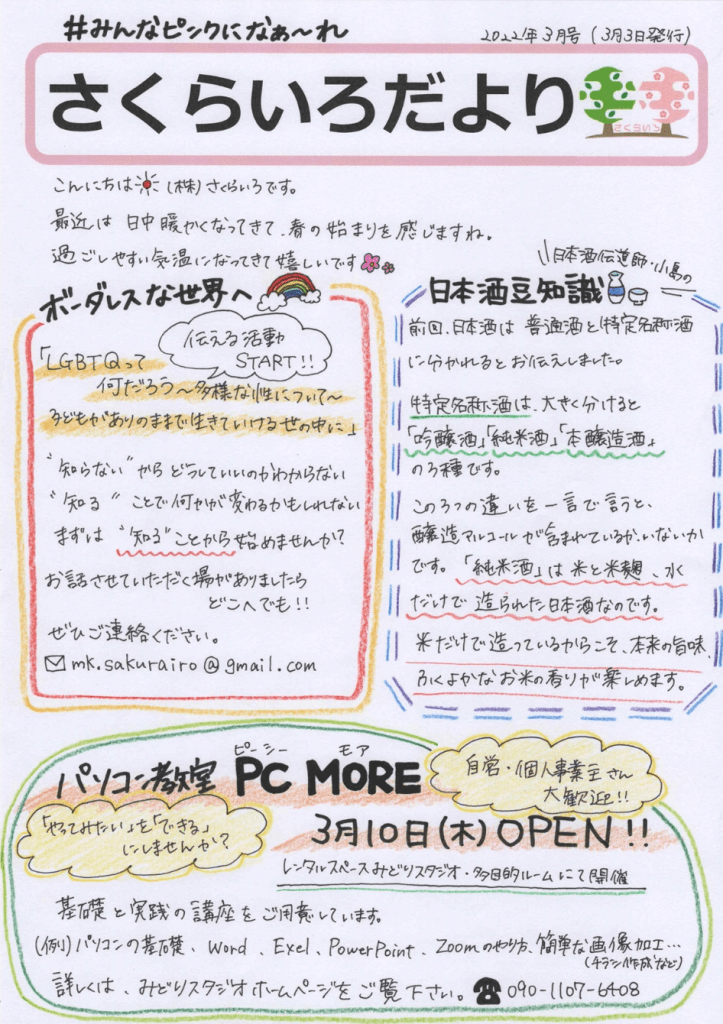 #みんなピンクになぁ〜れ
2022年3月号(3月3日発行)
さくらいろだより
さくらいろ
こんにちは (株)さくらいろです。
最近は 日中暖かくなってきて、春の始まりを感じますね。
過ごしやすい気温になってきて嬉しいです
ボーダレスな世界へ
伝える活動
START!!
「LGBTQって
何だろう〜多様な性について〜
子どもがありのままで生きていける世の中に」
"知らない"からどうしていいのかわからない
"知る"ことで何かが変わるかもしれない
まずは"知る"ことから始めませんか?
お話させていただく場がありましたら
どこへでも!!
ぜひご連絡ください。
mk.sakurairo@gmail.com
日本酒伝道師・小島の
日本酒豆知識
前回、日本酒は 普通酒と特定名称酒
に分かれるとお伝えしました。
特定名称酒は、大きく分けると
「吟醸酒」「純米酒」「本醸造酒」
の3種です。
この3つの違いを一言で言うと、
醸造アルコールが含まれているか、いないか
です。「純米酒」は米と米麹、水
だけで造られた日本酒なのです。
米だけで造っているからこそ、本来の旨味、
ふくよかなお米の香りが楽しめます。
パソコン教室 PC MORE
ピーシー モア
自営・個人事業主さん
大歓迎!!
「やってみたい」を「できる」
にしませんか?
3月10日(木)OPEN!!
レンタルスペースみどりスタジオ・多目的ルームにて開催
基礎と実践の講座をご用意しています。
(例)パソコンの基礎、Word、Exel、PowerPoint、Zoomのやり方、簡単な画像加工…
(チラシ作成など)
詳しくは、みどりスタジオホームページをご覧下さい。☎090-1107-6408